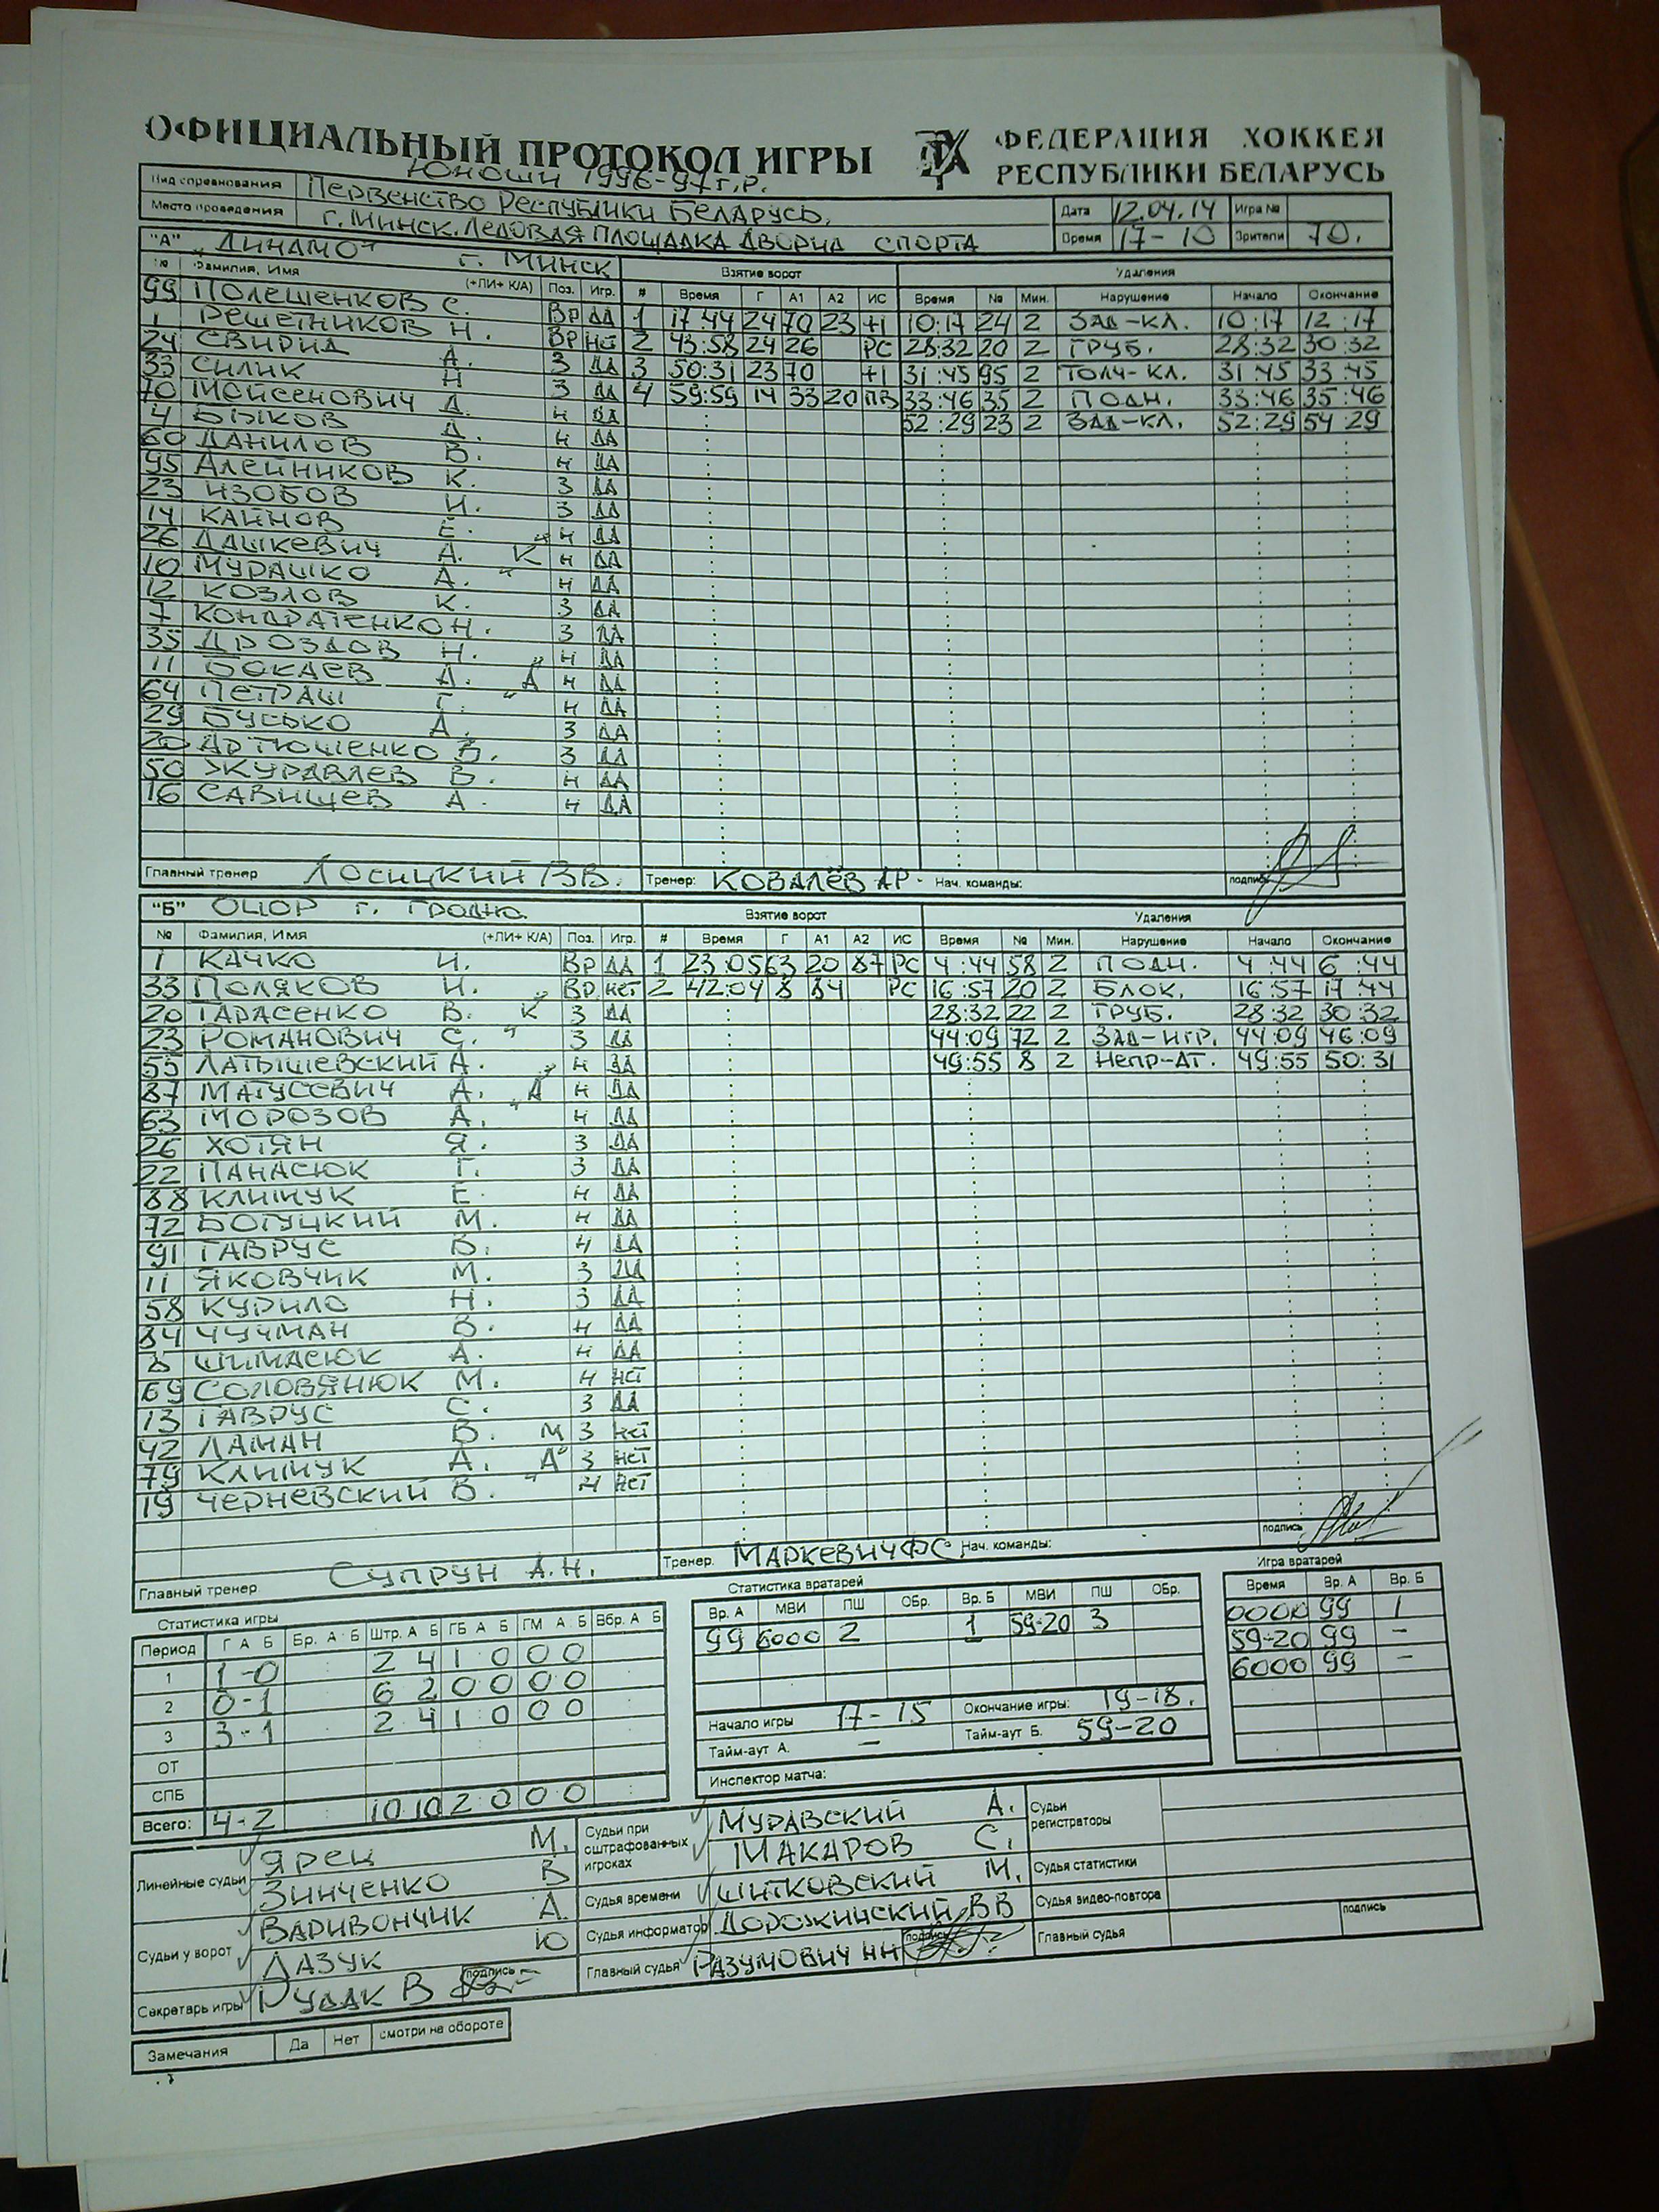 ОФИЦИАЛЬНЫЙ ПРОТОКОЛ ИГРЫ
ФЕДЕРАЦИЯ ХОККЕЯ
РЕСПУБЛИКИ БЕЛАРУСЬ
Юноши 1996-97 г.р.
Вид соревнования Первенство Республики Беларусь. Дата 12.04.14 Игра №
Место проведения г. Минск. Ледовая площадка Дворца спорта Время 17-10 Зрители 70.
"А" "Динамо" г. Минск Взятие ворот Удаления
№ Фамилия, Имя (+ЛИ+ К/А) Поз. Игр. # Время Г А1 А2 ИС Время № Мин. Нарушение Начало Окончание
99 Полешенков С. Вр ДА 1 17:44 24 70 23 +1 10:17 24 2 ЗАД-КЛ. 10:17 12:17
1 Решетников Н. Вр Нет 2 43:58 24 26 РС 28:32 20 2 ГРУБ. 28:32 30:32
24 Свирид А. З ДА 3 50:31 23 70 +1 31:45 95 2 ТОЛЧ-КЛ. 31:45 33:45
33 Силик Н З ДА 4 59:59 14 33 20 ПВ 33:46 35 2 ПОДН. 33:46 35:46
70 Мойсенович Д. Н ДА 52:29 23 2 ЗАД-КЛ. 52:29 54 29
4 Быков Д. Н ДА
60 Данилов В. Н ДА
95 Алейников К. З ДА
23 Изобов И. З ДА
14 Каинов Е. Н ДА
26 Дашкевич А. "К" Н ДА
10 Мурашко А. Н ДА
12 Козлов К. З ДА
7 Кондратенко Н. З ДА
35 Дроздов Н. Н ДА
11 Бокаев Д. "А" Н ДА
64 Петраш Г. Н ДА
29 Бусько А. З ДА
20 Артюшенко В. З ДА
50 Журавлев В. Н ДА
16 Савищев А. Н ДА
Главный тренер Лосицкий В.В. Тренер: Ковалёв АР. Нач. команды: подпись
"Б" ОЦОР г. Гродно. Взятие ворот Удаления
№ Фамилия, Имя (+ЛИ+ К/А) Поз. Игр. # Время Г А1 А2 ИС Время № Мин. Нарушение Начало Окончание
1 Качко И. Вр ДА 1 23:05 63 20 87 РС 4:44 58 2 ПОДН. 4:44 6:44
33 Поляков И. Вр. нет 2 42:04 8 84 РС 16:57 20 2 БЛОК. 16:57 17:44
20 Тарасенко В. "К" З ДА 28:32 22 2 ГРУБ. 28:32 30:32
23 Романович С. З ДА 44:09 72 2 ЗАД-ИГР. 44:09 46:09
55 Латышевский А. Н ДА 49:55 8 2 НЕПР-АТ. 49:55 50:31
87 Матусевич А. "А" Н ДА
63 Морозов А. Н ДА
26 Хотян Я. З ДА
22 Панасюк Г. З ДА
88 Климук Е. Н ДА
72 Богуцкий М. Н ДА
91 Гаврус В. Н ДА
11 Яковчик М. З ДА
58 Курило Н. З ДА
84 Чучман В. Н ДА
8 Шимасюк А. Н ДА
69 Соловянюк М. Н нет
13 Гаврус С. З ДА
42 Ламан В. М З нет
79 Климук А. "А" З нет
19 Черневский В. Н нет
Главный тренер Супрун А.Н. Тренер. Маркевич ФС. Нач. команды: подпись
Статистика игры
Период Г А Б Бр. А Б Штр. А Б ГБ А Б ГМ А Б Вбр. А Б
1 1-0 2 4 1 0 0 0
2 0-1 6 2 0 0 0 0
3 3-1 2 4 1 0 0 0
ОТ
СПБ
Всего: 4-2 10 10 2 0 0 0
Статистика вратарей
Вр. А МВИ ПШ ОБр. Вр. Б МВИ ПШ ОБр.
99 6000 2 1 59-20 3
Начало игры 17-15 Окончание игры: 19-18.
Тайм-аут А. — Тайм-аут Б. 59-20
Инспектор матча:
Игра вратарей
Время Вр. А Вр. Б
0000 99 1
59-20 99 -
6000 99 -
Линейные судьи Ярец М.
Зинченко В
Судьи у ворот Варивончик А.
Лазук Ю
Секретарь игры Рудак В подпись
Судьи при оштрафованных игроках Муравский А.
Макаров С.
Судья времени Шитковский М.
Судья информатор Дорожинский ВВ
Главный судья Разумович НН подпись
Судьи регистраторы
Судья статистики
Судья видео-повтора
Главный судья подпись
Замечания Да Нет смотри на обороте